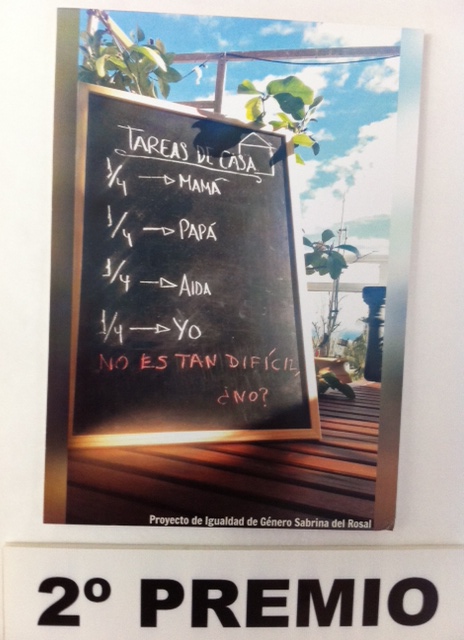 TAREAS DE CASA
1/4 → MAMÁ
1/4 → PAPÁ
1/4 → AIDA
1/4 → YO
NO ES TAN DIFÍCIL,
¿NO?
Proyecto de Igualdad de Género Sabrina del Rosal
2º PREMIO